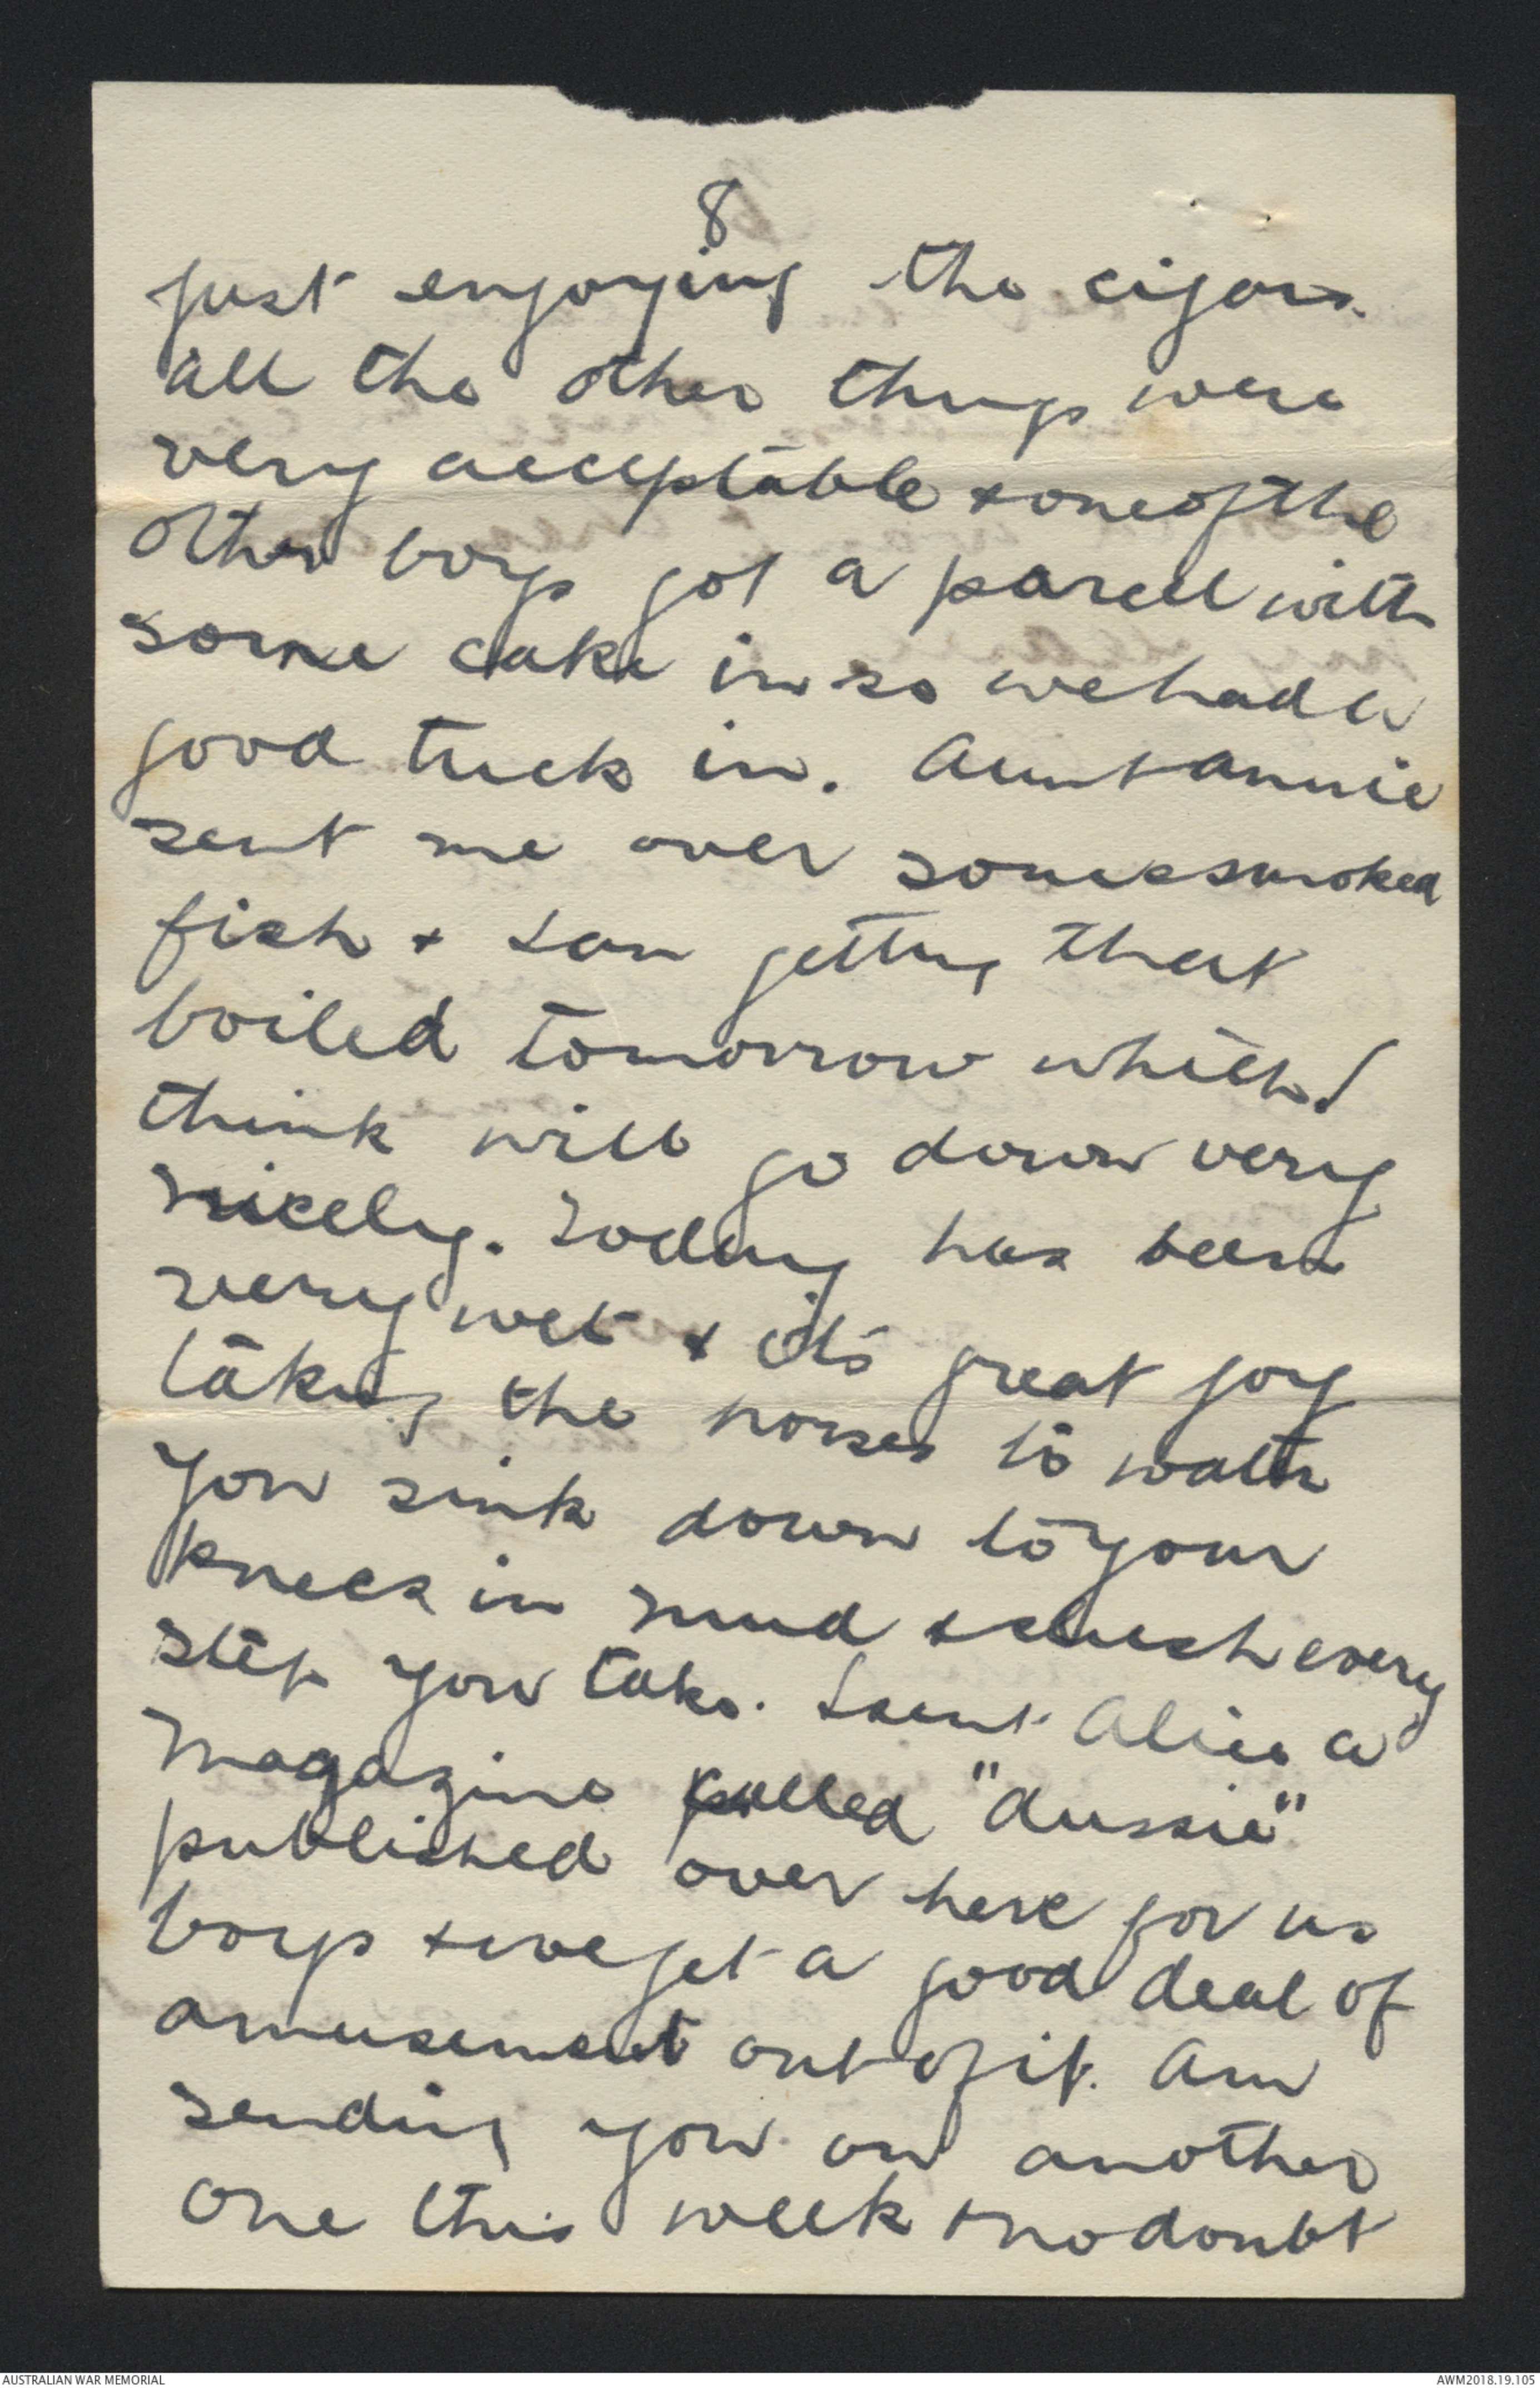 8
just enjoying the cigars.
all the other things were
very acceptable & one of the
other boys got a parcel with
some cake in so we had a
good tuck in. Aunt Annie
sent me over some smoked
fish & I am getting that
boiled tomorrow which I
think will go down very
nicely. Today has been
very wet & its great joy
taking the horses to water
you sink down to your
knees in mud & slush every
step you take. I sent Alice a
magazine called "Aussie"
published over here for us
boys & we get a good deal of
amusement out of it. Am
sending you on another
one this week & no doubt
AUSTRALIAN WAR MEMORIAL
AWM2018.19.105